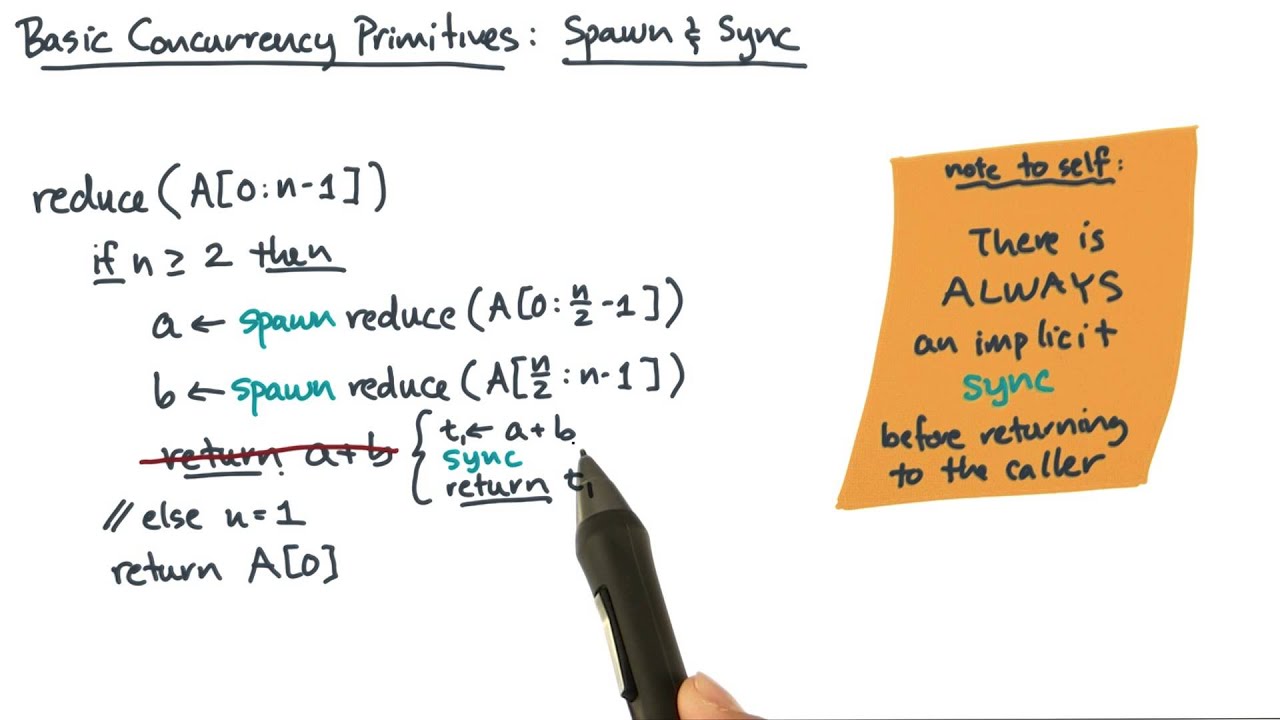 Basic Concurrency Primitives: Spawn & Sync
reduce (A[0:n-1])
if n ≥ 2 then
a ← spawn reduce (A[0:n/2-1])
b ← spawn reduce (A[n/2:n-1])
return a+b
t₁ ← a+b
sync
return t₁
// else n=1
return A[0]
note to self:
There is
ALWAYS
an implicit
sync
before returning
to the caller